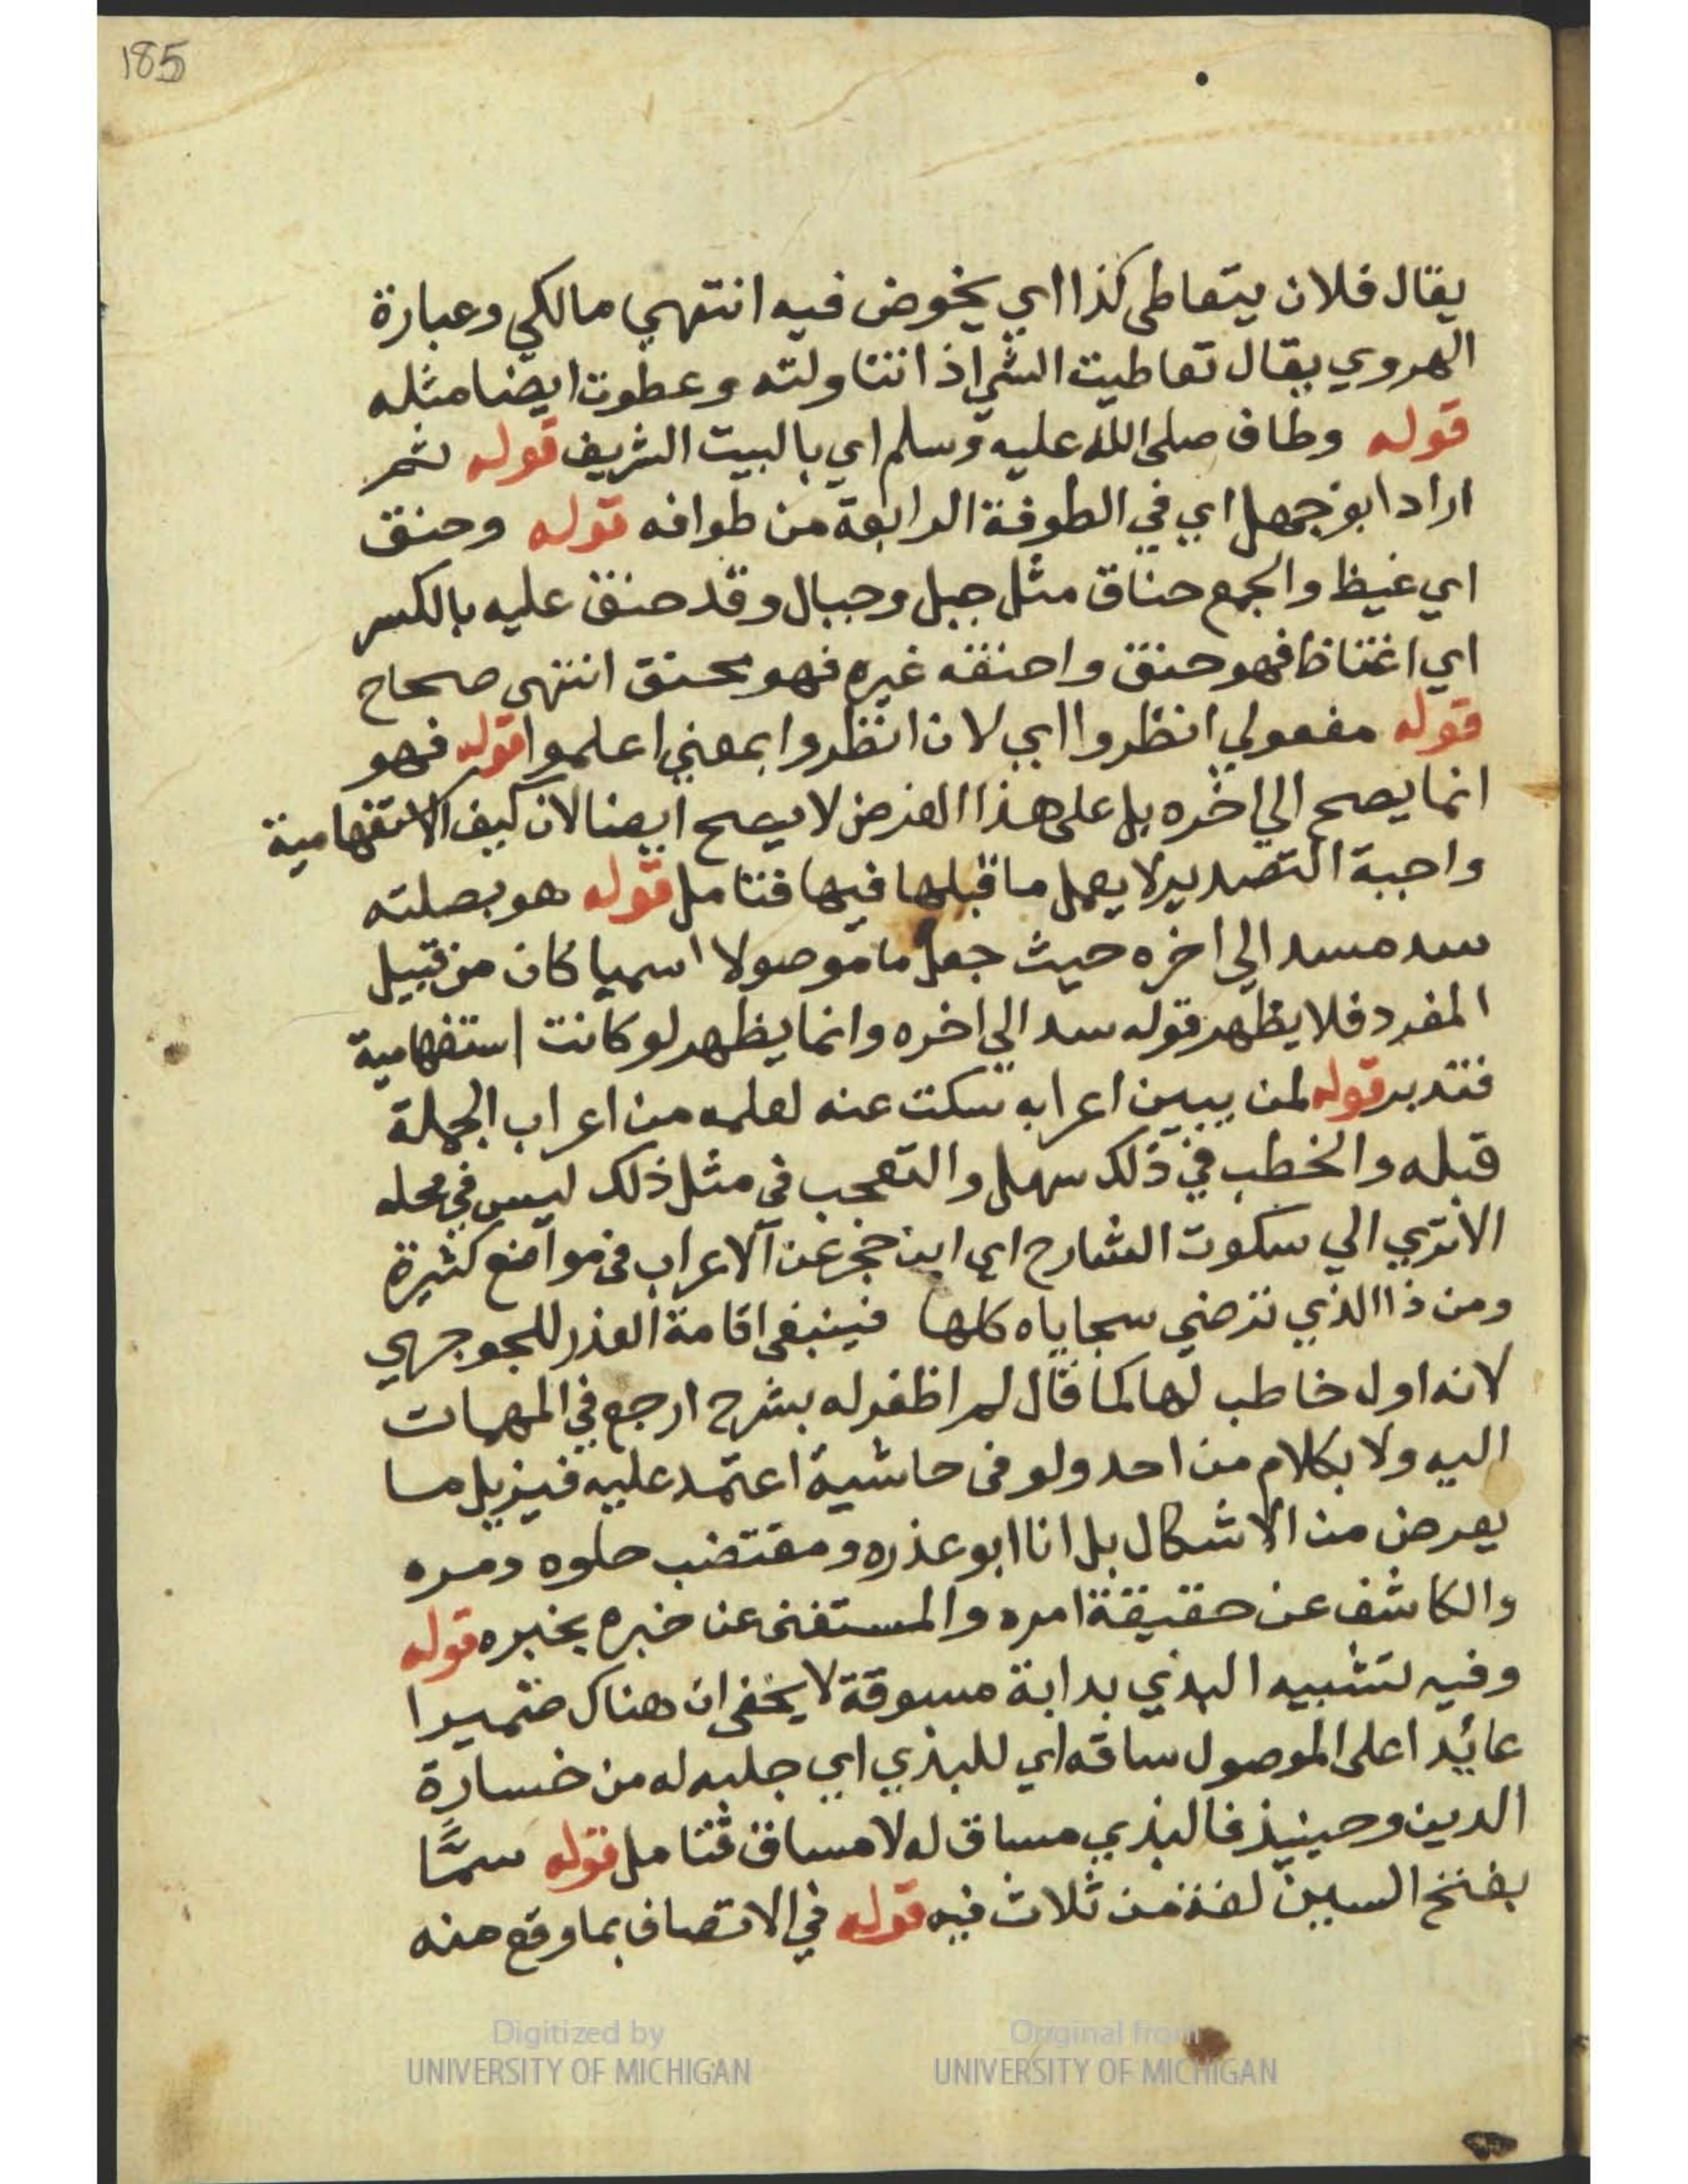 185
يقال فلان يتعاطى كذا اي يخوض فيه انتهي مالكي وعبارة
الهروي يقال تعاطيت الشي اذا تناولته وعطوت ايضا مثله
قوله وطاف صلى الله عليه وسلم اي بالبيت الشريف قوله ثم
اراد ابو جهل اي في الطوفة الرابعة من طوافه قوله وحنق
اي غيظ والجمع حناق مثل جبل وجبال وقد حنق عليه بالكسر
اي اغتاظ فهو حنق واحنقه غيره فهو محنق انتهى صحاح
قوله مفعولي انظروا اي لان انظروا بمعني اعلموا قوله فهو
انما يصح الي اخره بل على هذا الفرض لا يصح ايضا لان كيف الاستفهامية
واجبة التصدير لا يعمل ما قبلها فيها فتامل قوله هو بصلته
سد مسد الي اخره حيث جعل ما موصولا اسميا كان من قبيل
المفرد فلا يظهر قوله سد الي اخره وانما يظهر لو كانت استفهامية
فتدبر قوله لمن يبين اعرابه سكت عنه لعلمه من اعراب الجملة
قبله والخطب في ذلك سهل والتعجب في مثل ذلك ليس في محله
الا تري الي سكوت الشارح اي ابن حجر عن الاعراب في مواضع كثيرة
ومن ذا الذي ترضي سجاياه كلها فينبغي اقامة العذر للجوجري
لانه اول خاطب لها كما قال لم اظفر له بشرح ارجع في المهمات
اليه ولا بكلام من احد ولو في حاشية اعتمد عليه فيزيل ما
يعرض من الاشكال بل انا ابو عذره ومقتضب حلوه ومره
والكاشف عن حقيقة امره والمستغنى عن خبره بخبره قوله
وفيه تشبيه البذي بدابة مسوقة لا يخفى ان هناك ضميرا
عائدا على الموصول ساقه اي للبذي اي جلبه له من خسارة
الدين وحينيذ فالبذي مساق له لا مساق فتامل قوله سمًّا
بفتح السين لغة من ثلاث فيه قوله في الاتصاف بما وقع منه
Digitized by
UNIVERSITY OF MICHIGAN
Original from
UNIVERSITY OF MICHIGAN